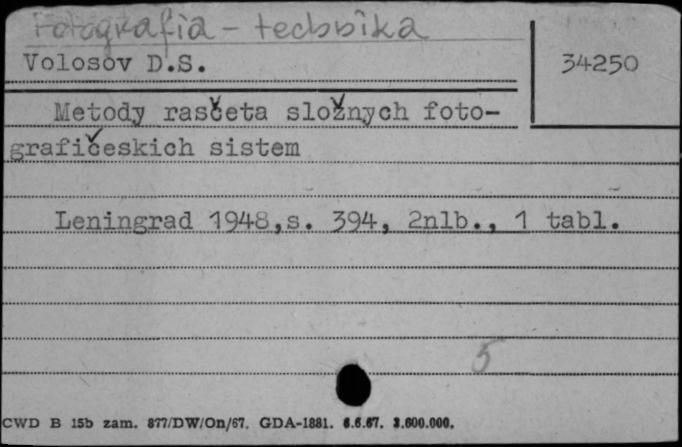 Fotografia - technika
Volosov D.S.
34250
Metody rasčeta složnych foto-
grafičeskich sistem
Leningrad 1948,s. 394, 2nlb., 1 tabl.
5
CWD B 15b zam. 877/DW/On/67. GDA-1881. 6.6.67. 3.600.000.